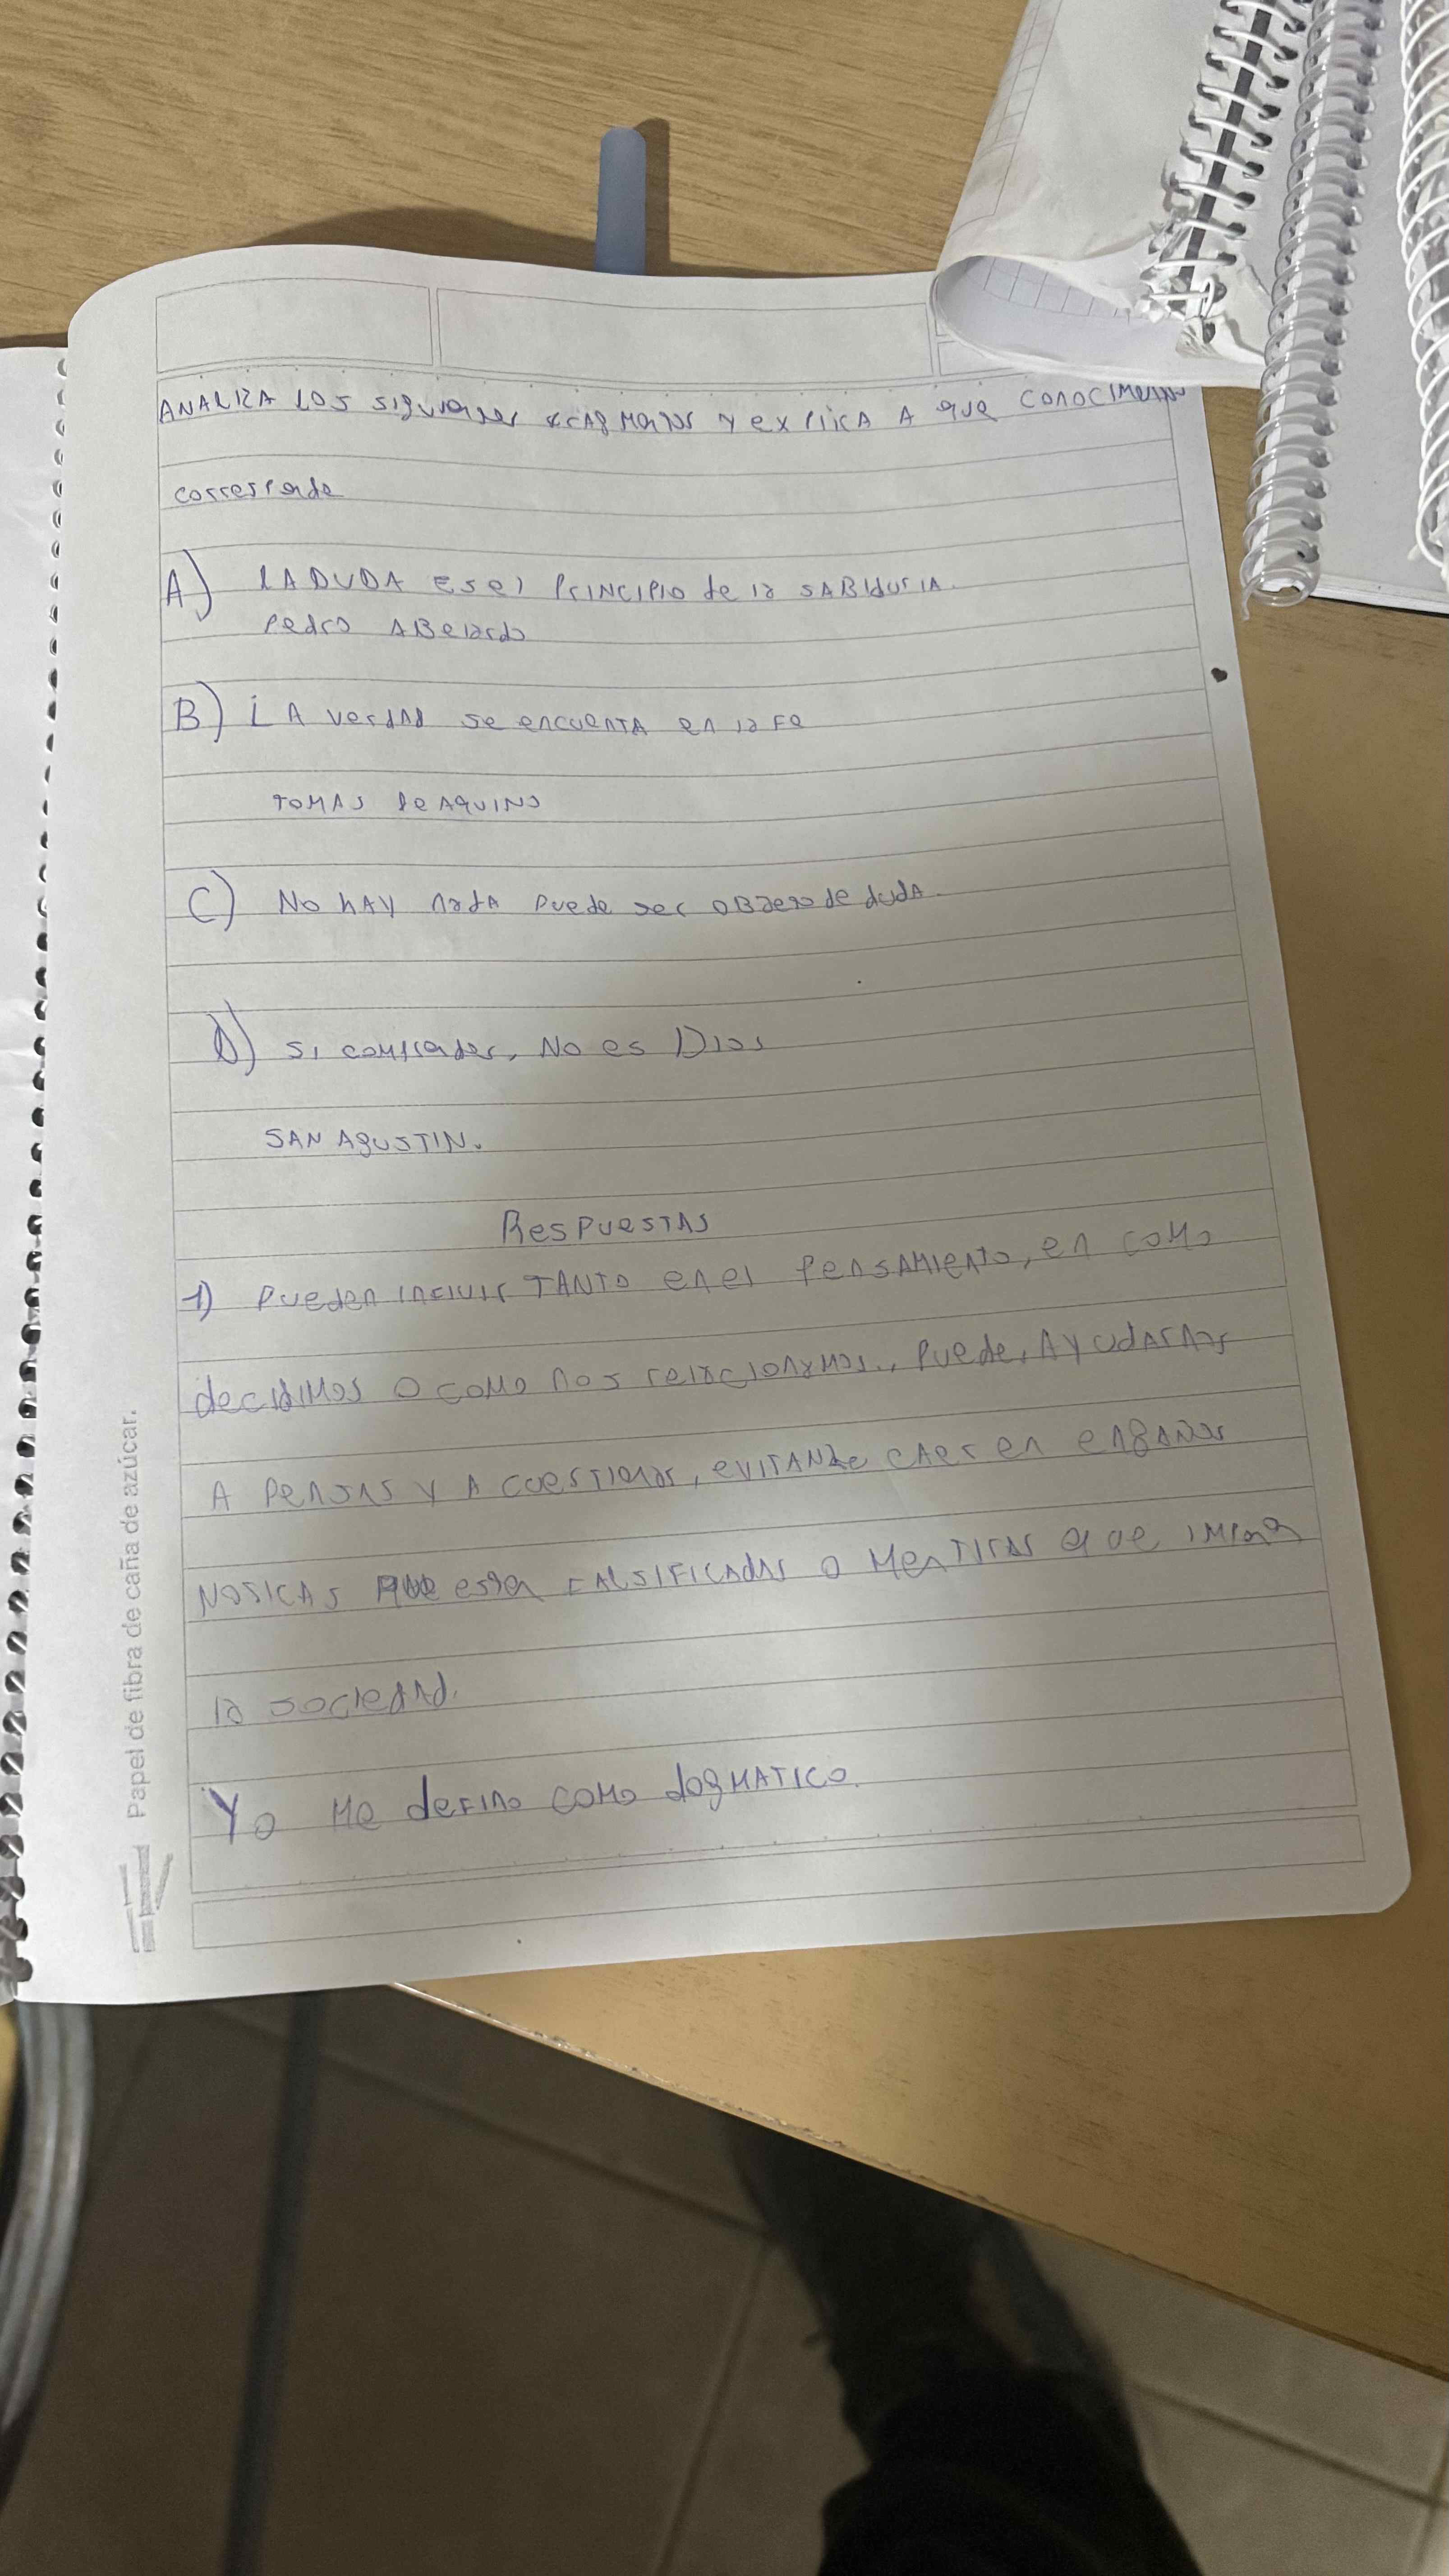 ANALIZA LOS siguientes fragmentos y explica A que CONOCIMIENTO
corresponde
A) LA DUDA ES el PRINCIPIO de la SABIduria.
Pedro ABelardo
B) LA verdad se encuenta en la Fe
TOMAS de AQUINO
C) No hAy nada puede ser OBJeto de duda.
D) Si comprendes, No es Dios
SAN AgUSTIN.
Respuestas
1) Pueden influir TANTO en el pensamiento, en como
decidimos o como nos relacionamos., puede, Ayudarnos
A pensar y A cuestionar, evitando caer en engaños
que esten FALSIFICAdas o MenTIras que
la sociedad.
Yo Me defino como dogMATICO.
Papel de fibra de caña de azúcar.